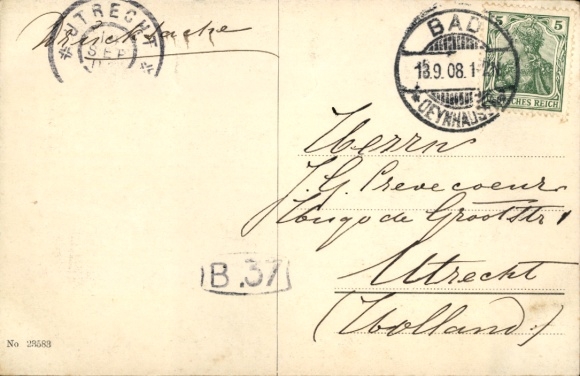 Drucksache
UTRECHT
SEP
BAD
13.9.08.1-2N
OEYNHAUSEN
5 5
DEUTSCHES REICH
Herrn
J. G. Crevecoeur
Hugo de Grootstr 1
Utrecht
(Holland.)
B.37
No 23583